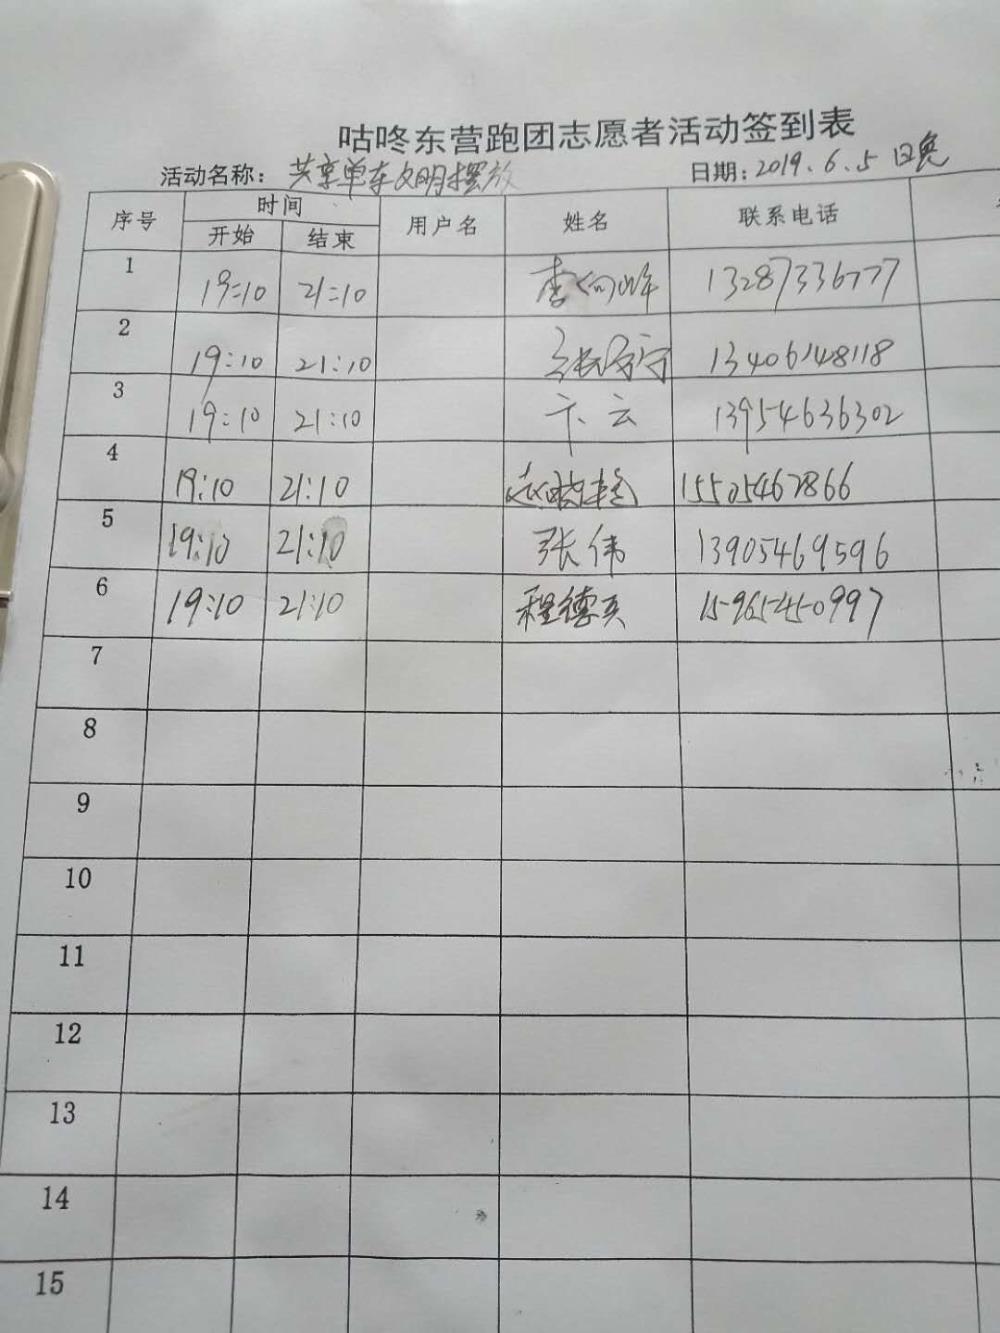 咕咚东营跑团志愿者活动签到表
活动名称：共享单车文明摆放 日期：2019.6.5日晚
序号 时间 用户名 姓名 联系电话
开始 结束
1 19:10 21:10 李向峰 13287336777
2 19:10 21:10 13406148118
3 19:10 21:10 卞云 13954636302
4 19:10 21:10 15505462866
5 19:10 21:10 张伟 13905469596
6 19:10 21:10 程德兵 15965450997
7
8
9
10
11
12
13
14
15